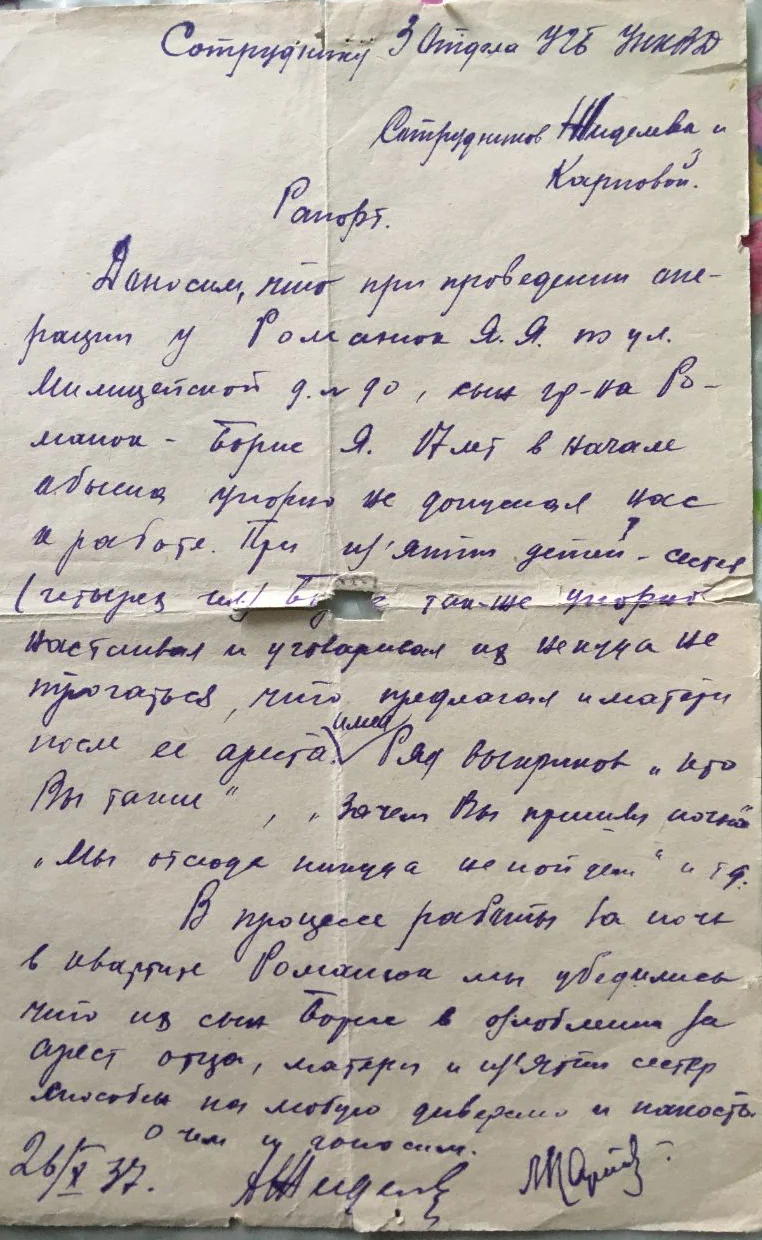 Сотруднику 3 Отдела УГБ УНКВД
Сотрудников Жиделева и
Карповой.
Рапорт.
Доносим, что при проведении опе-
рации у Романюк Я. Я. по ул.
Милицейской д. № 90, сын гр-на Ро-
манюк - Борис Я. 17 лет в начале
обыска упорно не допускал нас
к работе. При из'ятии детей - сестер
(четырех чел) так-же упорно
настаивал и уговаривал их некуда не
трогаться, что предлагал и матери
после ее ареста. имел Ряд выкриков „кто
Вы такие", „Зачем Вы пришли ночью"
„Мы отсюда никуда не пойдем" и тд.
В процессе работы за ночь
в квартире Романюк мы убедились
что их сын Борис в озлоблении за
арест отца, матери и из'ятии сестер
способен на любую диверсию и пакость
о чем и доносим.
26/X 37. Жиделев